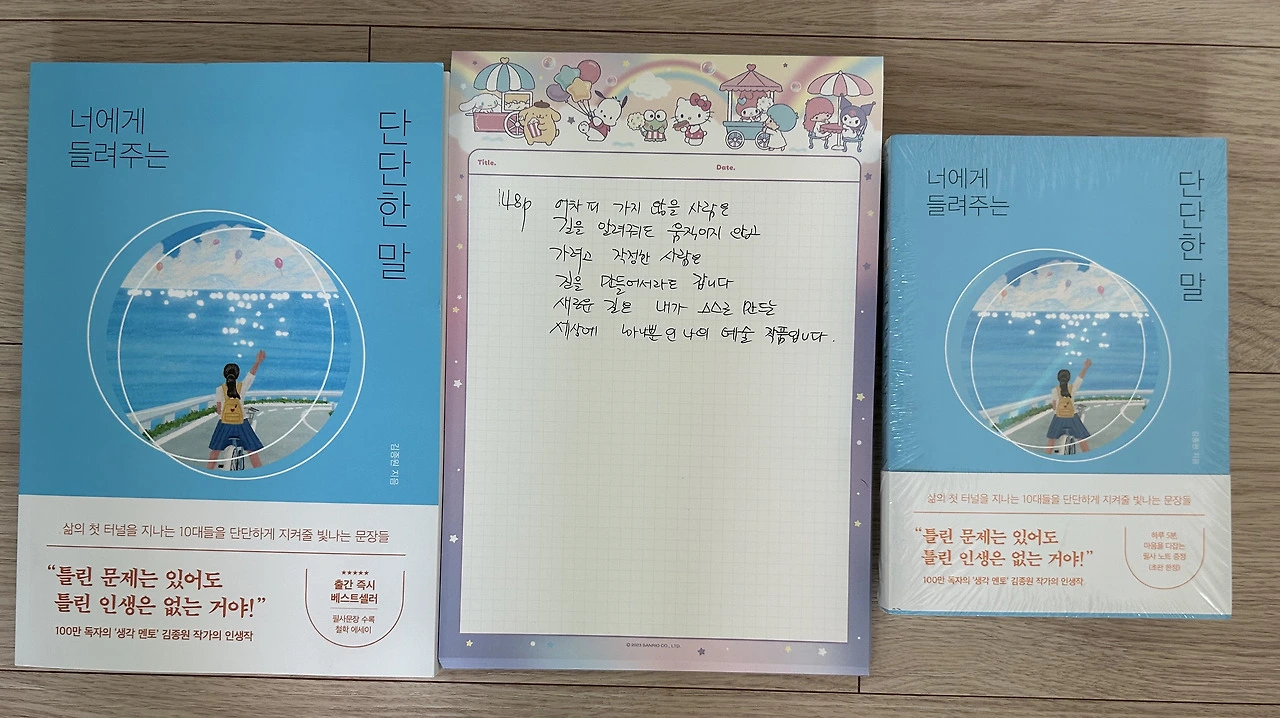 너에게
들려주는
단단한 말
김종원 지음
삶의 첫 터널을 지나는 10대들을 단단하게 지켜줄 빛나는 문장들
“틀린 문제는 있어도
틀린 인생은 없는 거야!”
100만 독자의 ‘생각 멘토’ 김종원 작가의 인생작
★★★★★
출간 즉시
베스트셀러
필사문장 수록
철학 에세이
Title.
Date.
148p
어차피 가지 않을 사람은
길을 알려줘도 움직이지 않고
가려고 작정한 사람은
길을 만들어서라도 갑니다
새로운 길은 내가 스스로 만든
세상에 하나뿐인 나의 예술 작품입니다.
© 2023 SANRIO CO., LTD.
너에게
들려주는
단단한 말
김종원 지음
삶의 첫 터널을 지나는 10대들을 단단하게 지켜줄 빛나는 문장들
“틀린 문제는 있어도
틀린 인생은 없는 거야!”
100만 독자의 ‘생각 멘토’ 김종원 작가의 인생작
하루 5분,
마음을 다잡는
필사 노트 증정
(초판 한정)